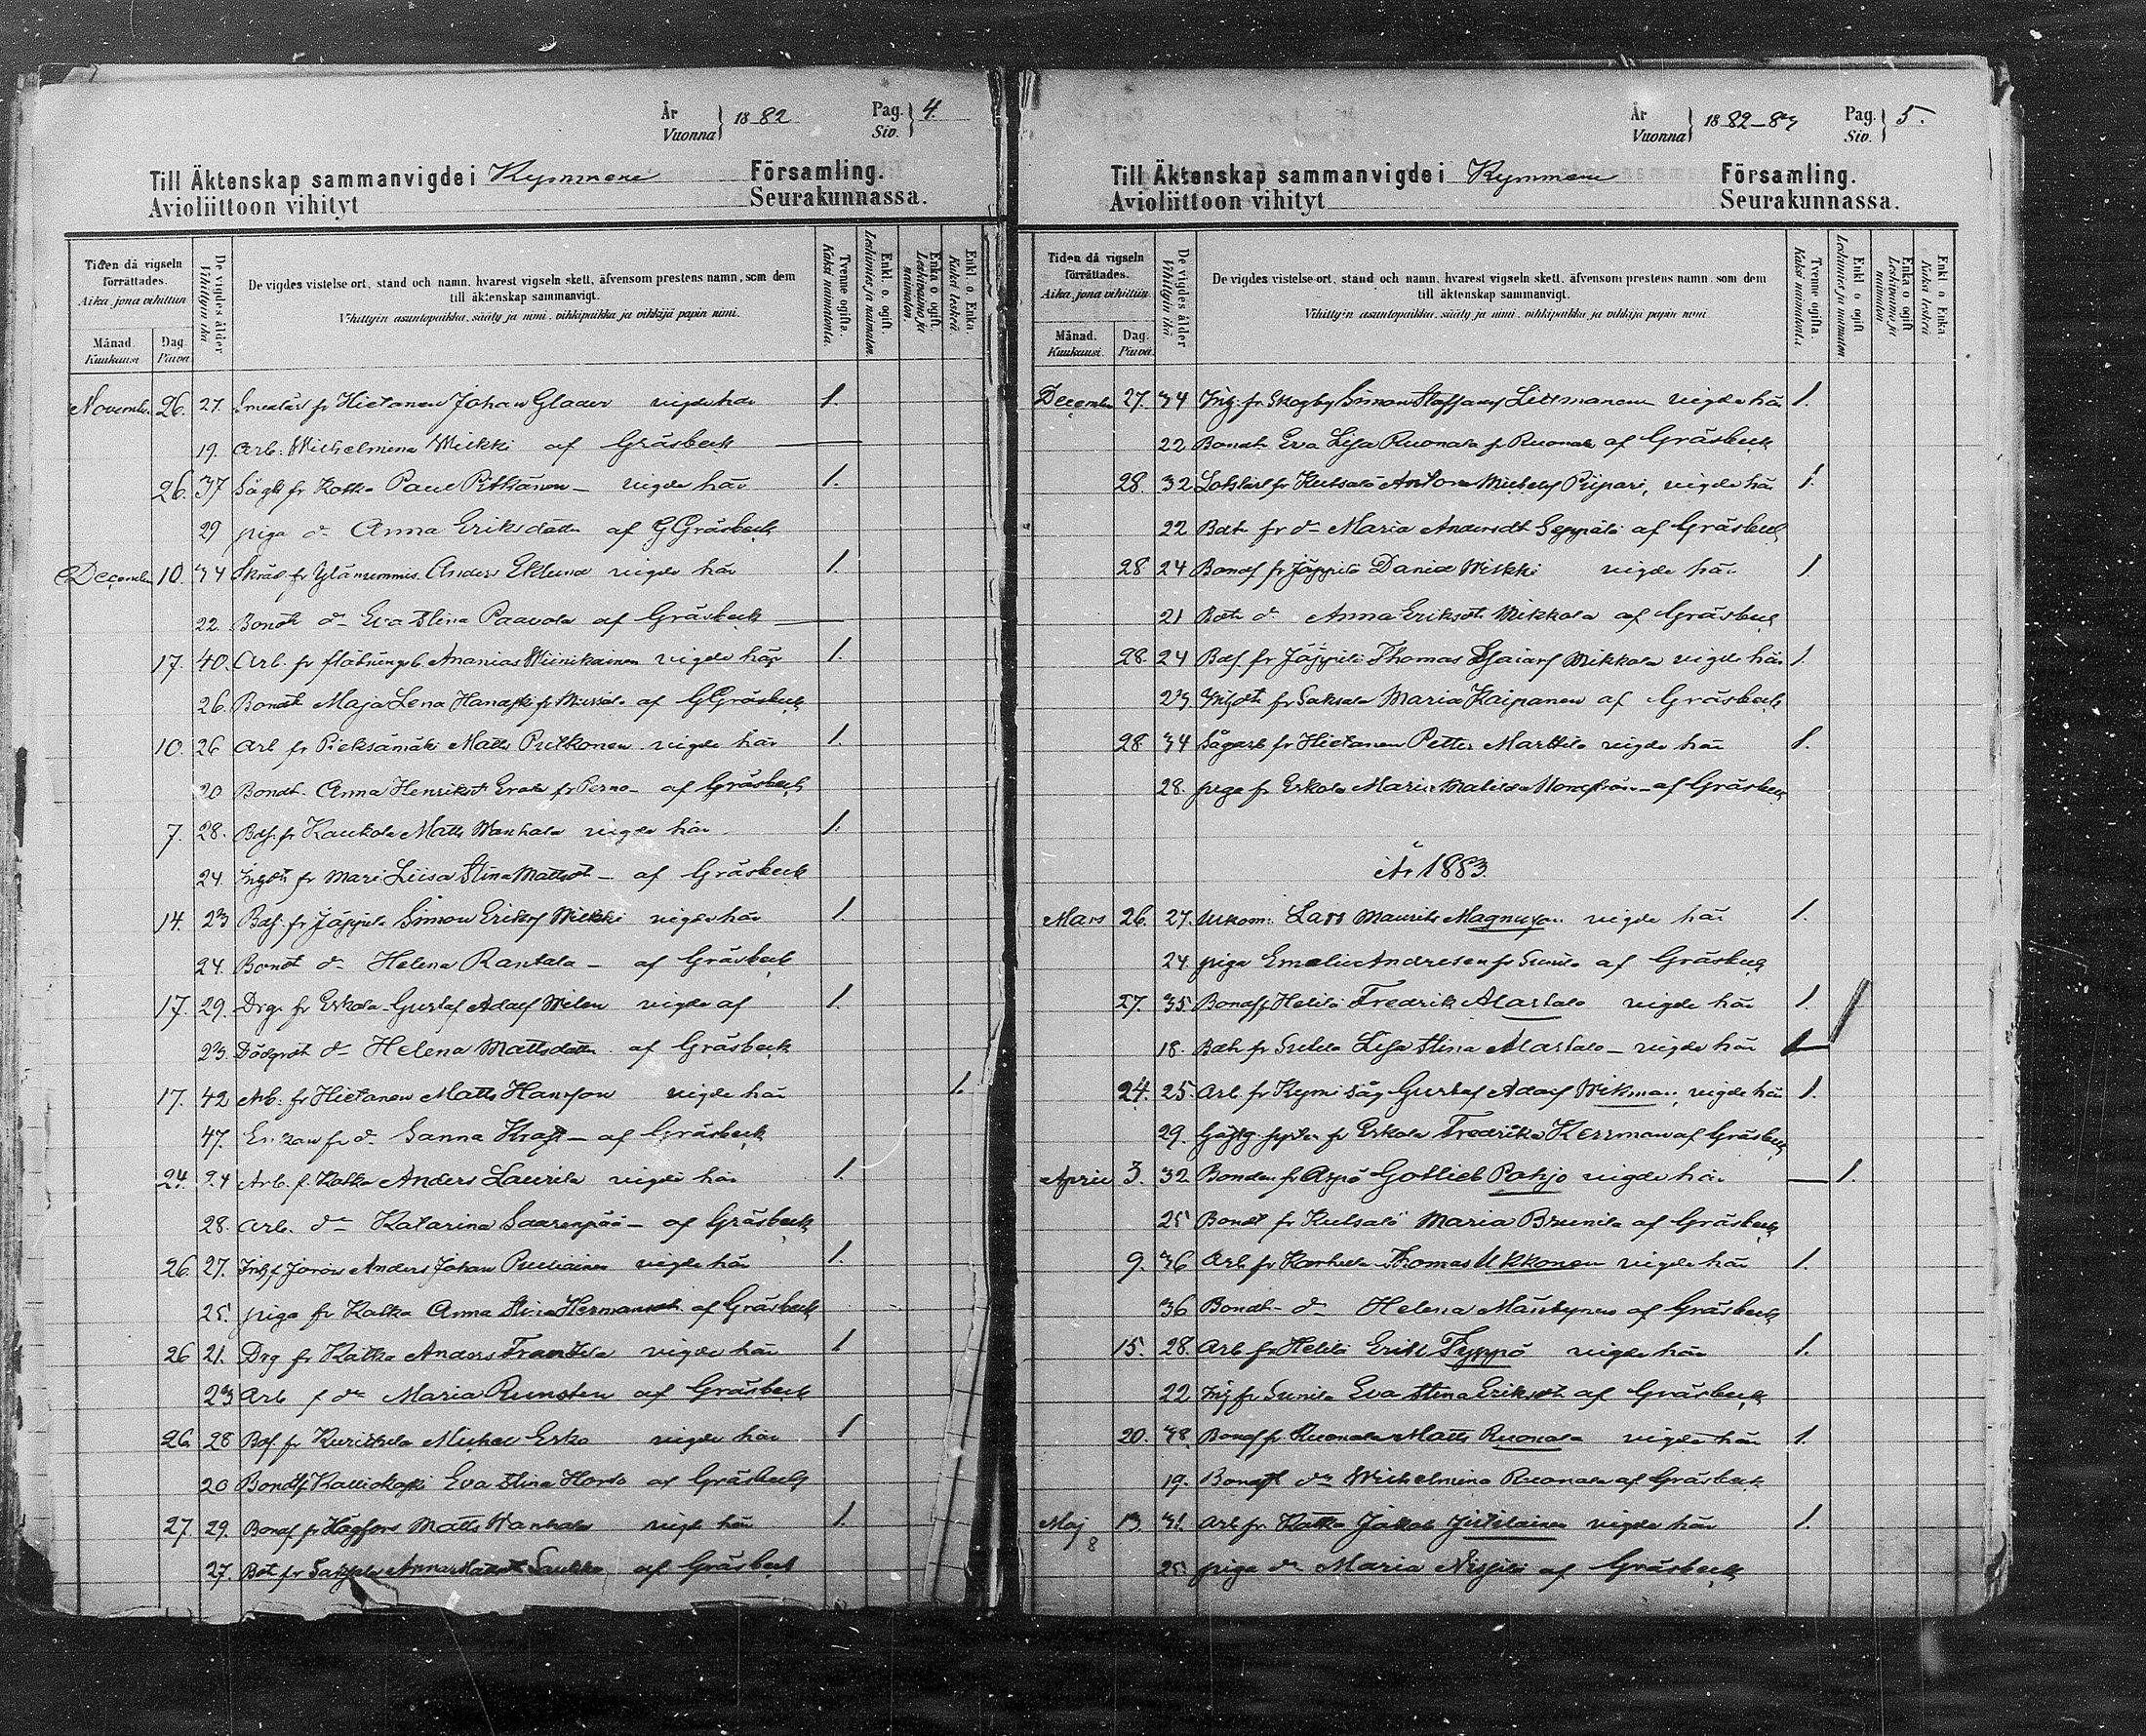 År
Vuonna } 1882
Pag.
Siv. } 4.
Till Äktenskap sammanvigde i Kymmene Församling.
Avioliittoon vihityt Seurakunnassa.
Tiden då vigseln förrättades.
Aika, jona vihittiin
Månad.
Kuukausi
Dag
Päivä
De vigdes ålder
Vihittyin ikä
De vigdes vistelse ort, stånd och namn, hvarest vigseln skett, äfvensom prestens namn, som dem
till äktenskap sammanvigt.
Vihittyin asuntopaikka, sääty ja nimi, vihkipaikka ja vihkijä papin nimi.
Tvenne ogifta.
Kaksi naimatonta.
Enkl. o. ogift.
Leskimies ja naimaton.
Enka o. ogift.
Leskivaimo ja naimaton.
Enkl. o. Enka.
Kaksi leskeä
Novemb. 26. 27. fr Hietanen Johan Glader vigde här 1.
19. Arb. Wilhelmina Mikki af Gräsbeck
26. 37 fr Kotka Paul Pitkänen vigde här 1.
29 piga d:o Anna Eriksdotter af G Gräsbeck
December 10. 34 fr Anders Eklund vigde här 1.
22. Bondt d:o Eva Stina Paavola af Gräsbeck
17. 40. Arb. fr Ananias Miinikainen vigde här 1.
26. Bondt Maja Lena fr af G Gräsbeck
10. 26 Arb fr Pieksämäki Matts Pulkonen vigde här 1.
20 Bondt. Anna Henriksdt fr Perno af Gräsbeck
7. 28. Bdf. fr Kaukola Matts Wanhala vigde här 1.
24 fr Mari Liisa Stina Mattsdt af Gräsbeck
14. 23 Bdf. fr Jäppilä Simon Eriksf Mikki vigde här 1.
24. Bondt d:o Helena Rantala af Gräsbeck
17. 29. Drg fr Erkola Gustaf Adolf Wilen vigde af 1.
23. d:o Helena Mattsdotter af Gräsbeck
17. 42 Arb. fr Hietanen Matts Hansson vigde här 1.
47. Enkan fr d:o Sanna Kraft af Gräsbeck
24. 24 Arb. f. Kotka Anders Laurila vigde här 1.
28. Arb. d:o Katarina Saarenpää af Gräsbeck
26. 27. Anders Johan Pulliainen vigde här 1.
25. piga fr Kotka Anna Stina Hermansdt. af Gräsbeck
26 21. Drg fr Kotka Anders Frantila vigde här 1
23 Arb f d:o Maria Rumsten af Gräsbeck
26. 28 Bdf. fr Kurittula Michel Erko vigde här 1
20 Eva Stina Horto af Gräsbeck
27. 29. Bonf fr Högfors Matts Wanhala vigde här 1.
27. fr Anna Mattsdt af Gräsbeck
År
Vuonna } 1882-83
Pag.
Siv. } 5.
Till Äktenskap sammanvigde i Kymmene Församling.
Avioliittoon vihityt Seurakunnassa.
Tiden då vigseln förrättades.
Aika, jona vihittiin.
Månad.
Kuukausi.
Dag.
Päivä.
De vigdes ålder
Vihittyin ikä.
De vigdes vistelse ort, stånd och namn, hvarest vigseln skett, äfvensom prestens namn, som dem
till äktenskap sammanvigt.
Vihittyin asuntopaikka, sääty ja nimi, vihkipaikka ja vihkijä papin nimi
Tvenne ogifta.
Kaksi naimatonta
Enkl o ogift
Leskimies ja naimaton
Enka o ogift
Leskivaimo ja naimaton.
Enkl o Enka
Kaksi leskeä
December 27. 34 fr Skogby Simon Staffansf Littmanen vigde här 1.
22 Bondt. Eva Lisa Ruonala fr Ruonala af Gräsbeck
28. 32 fr Kutsalö Anton Michelsf Pripari, vigde här 1.
22 Bdt. fr d:o Maria Andersdt Seppälä af Gräsbeck
28 24 Bonf fr Jäppilä Daniel Mikki vigde här 1
21 Bdt d:o Anna Eriksdt Mikkola af Gräsbeck
28. 24 Bdf fr Jäppilä Thomas Esaiasf Mikkola vigde här 1.
23. fr Saksala Maria Kaipanen af Gräsbeck
28 34 Sågarb fr Hietanen Petter Marttila vigde här 1.
28. piga fr Erkola Maria Matilda af Gräsbeck
År 1883.
Mars 26. 27. Lars Maurits Magnusson vigde här 1.
24 piga Emelie Andresen fr Sunila af Gräsbeck
27. 35. Bonf fr Helilä Fredrik Alastalo vigde här 1.
18. Bdt. fr Sutela Lisa Stina Alastalo vigde här 1
24. 25. Arb. fr Kymi såg Gustaf Adolf Wikman, vigde här 1.
29. fr Erkola Fredrika Kerrman af Gräsbeck
April 3. 32 Bonden fr Aspö Gotlieb Pohjo vigde här 1.
25 Bondt fr Kutsalö Maria Brunila af Gräsbeck
9. 36 Arb fr Karhula Thomas Ukkonen vigde här 1.
36 Bondt d:o Helena Mäntynen af Gräsbeck
15. 28. Arb fr Helilä Erik Typpö vigde här 1.
22 fr Sunila Eva Stina Eriksdt af Gräsbeck
20. 38. Bonf fr Ruonala Matts Ruonala vigde här 1.
19. Bondt d:o Wilhelmina Ruonala af Gräsbeck
Maj 13. 31. Arb fr Kotka Jakob Jutilainen vigde här 1.
8
25. piga d:o Maria Nissilä af Gräsbeck